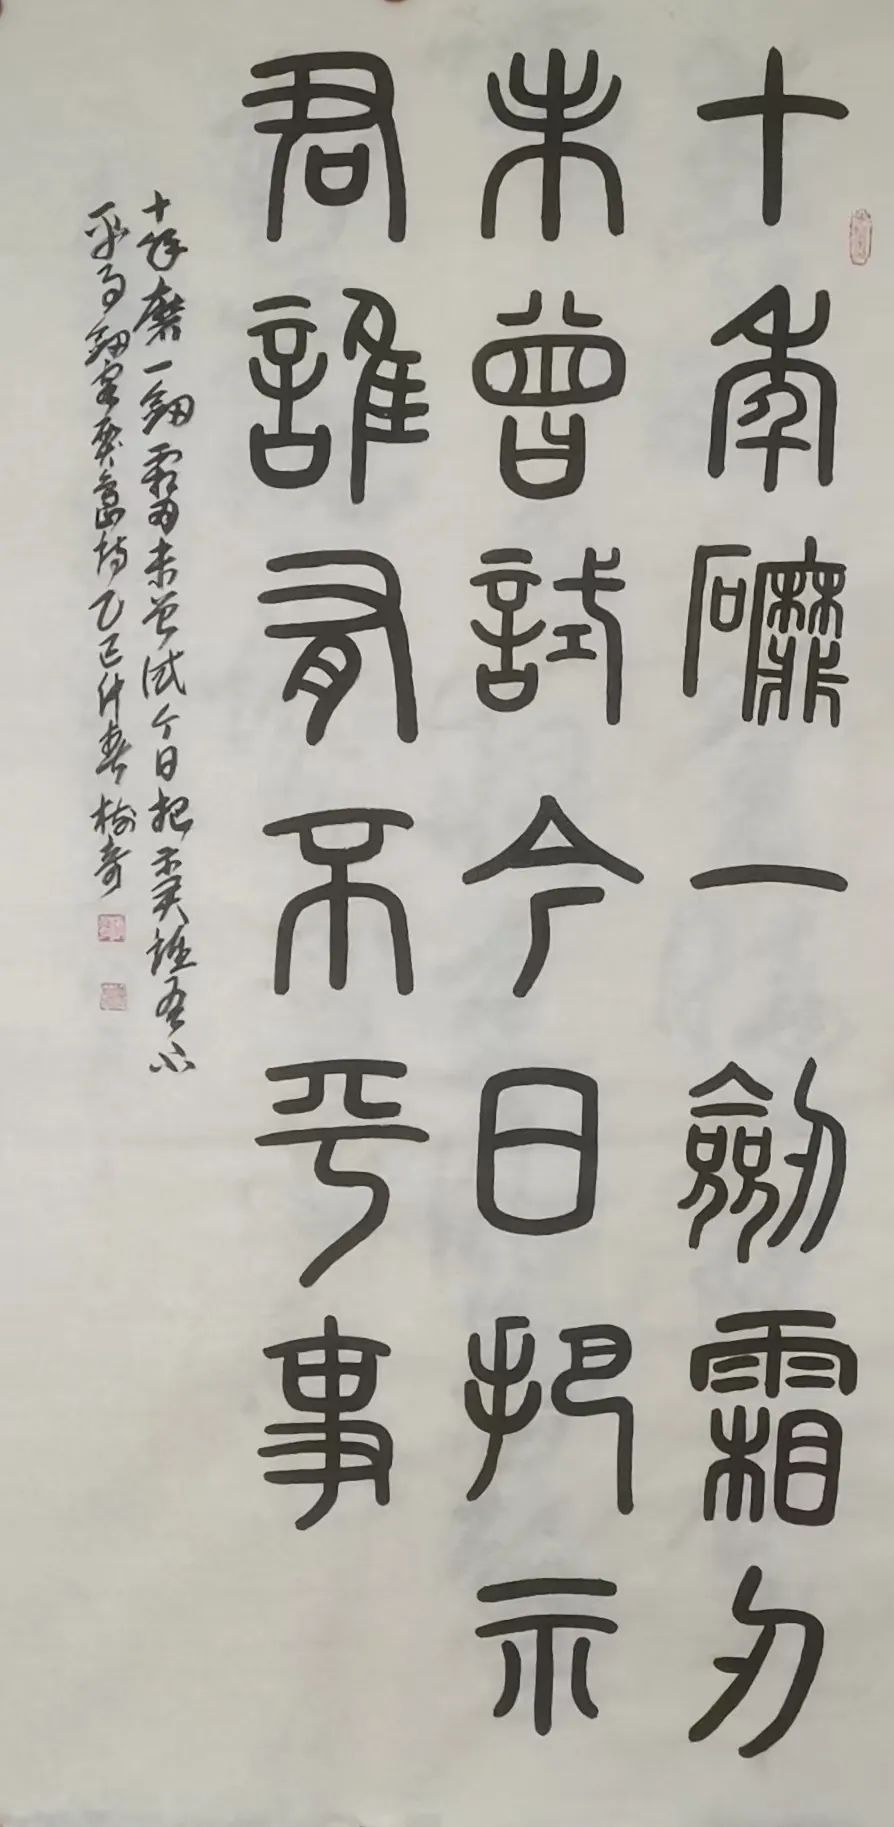 十年磨一劍霜刃
未曾試今日把示
君誰有不平事
十年磨一劍霜刃未曾試今日把示君誰有不
平事劍客賈島詩乙巳仲春